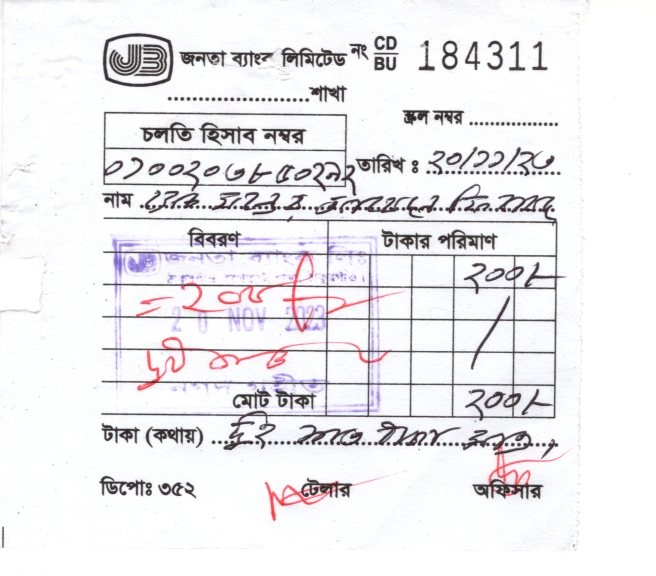 JB জনতা ব্যাংক লিমিটেড নং CD/BU 184311
....................শাখা
স্ক্রল নম্বর ................
চলতি হিসাব নম্বর
তারিখ : ২০/১১/২৩
নাম
বিবরণ টাকার পরিমাণ
JB জনতা ব্যাংক লিঃ
২০০/-
= ২০০
20 NOV 2023
দুই শত
মোট টাকা ২০০/-
টাকা (কথায়) দুই শত টাকা মাত্র
ডিপোঃ ৩৫২ টেলার অফিসার